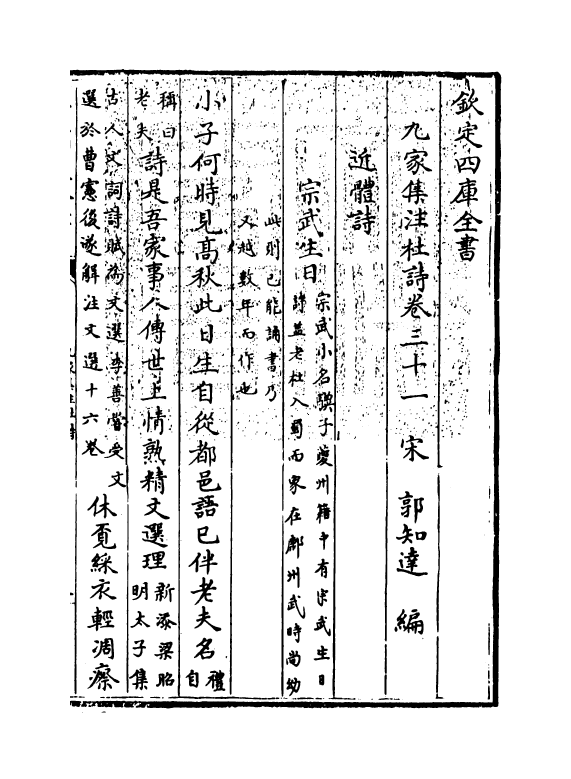 欽定四庫全書
九家集注杜詩卷三十一　宋　郭知達　編
近體詩
宗武生日
宗武小名驥子夔州籍中有宗武生日
詩蓋老杜入蜀而家在鄜州武時尚幼
此則已能誦書乃
又越數年而作也
小子何時見高秋此日生自從都邑語已伴老夫名
禮
自
稱曰
老夫
詩是吾家事人傳世上情熟精文選理
新添梁昭
明太子集
古人文詞詩賦為文選李善嘗受文
選於曹憲後遂解注文選十六卷
休覓綵衣輕凋瘵